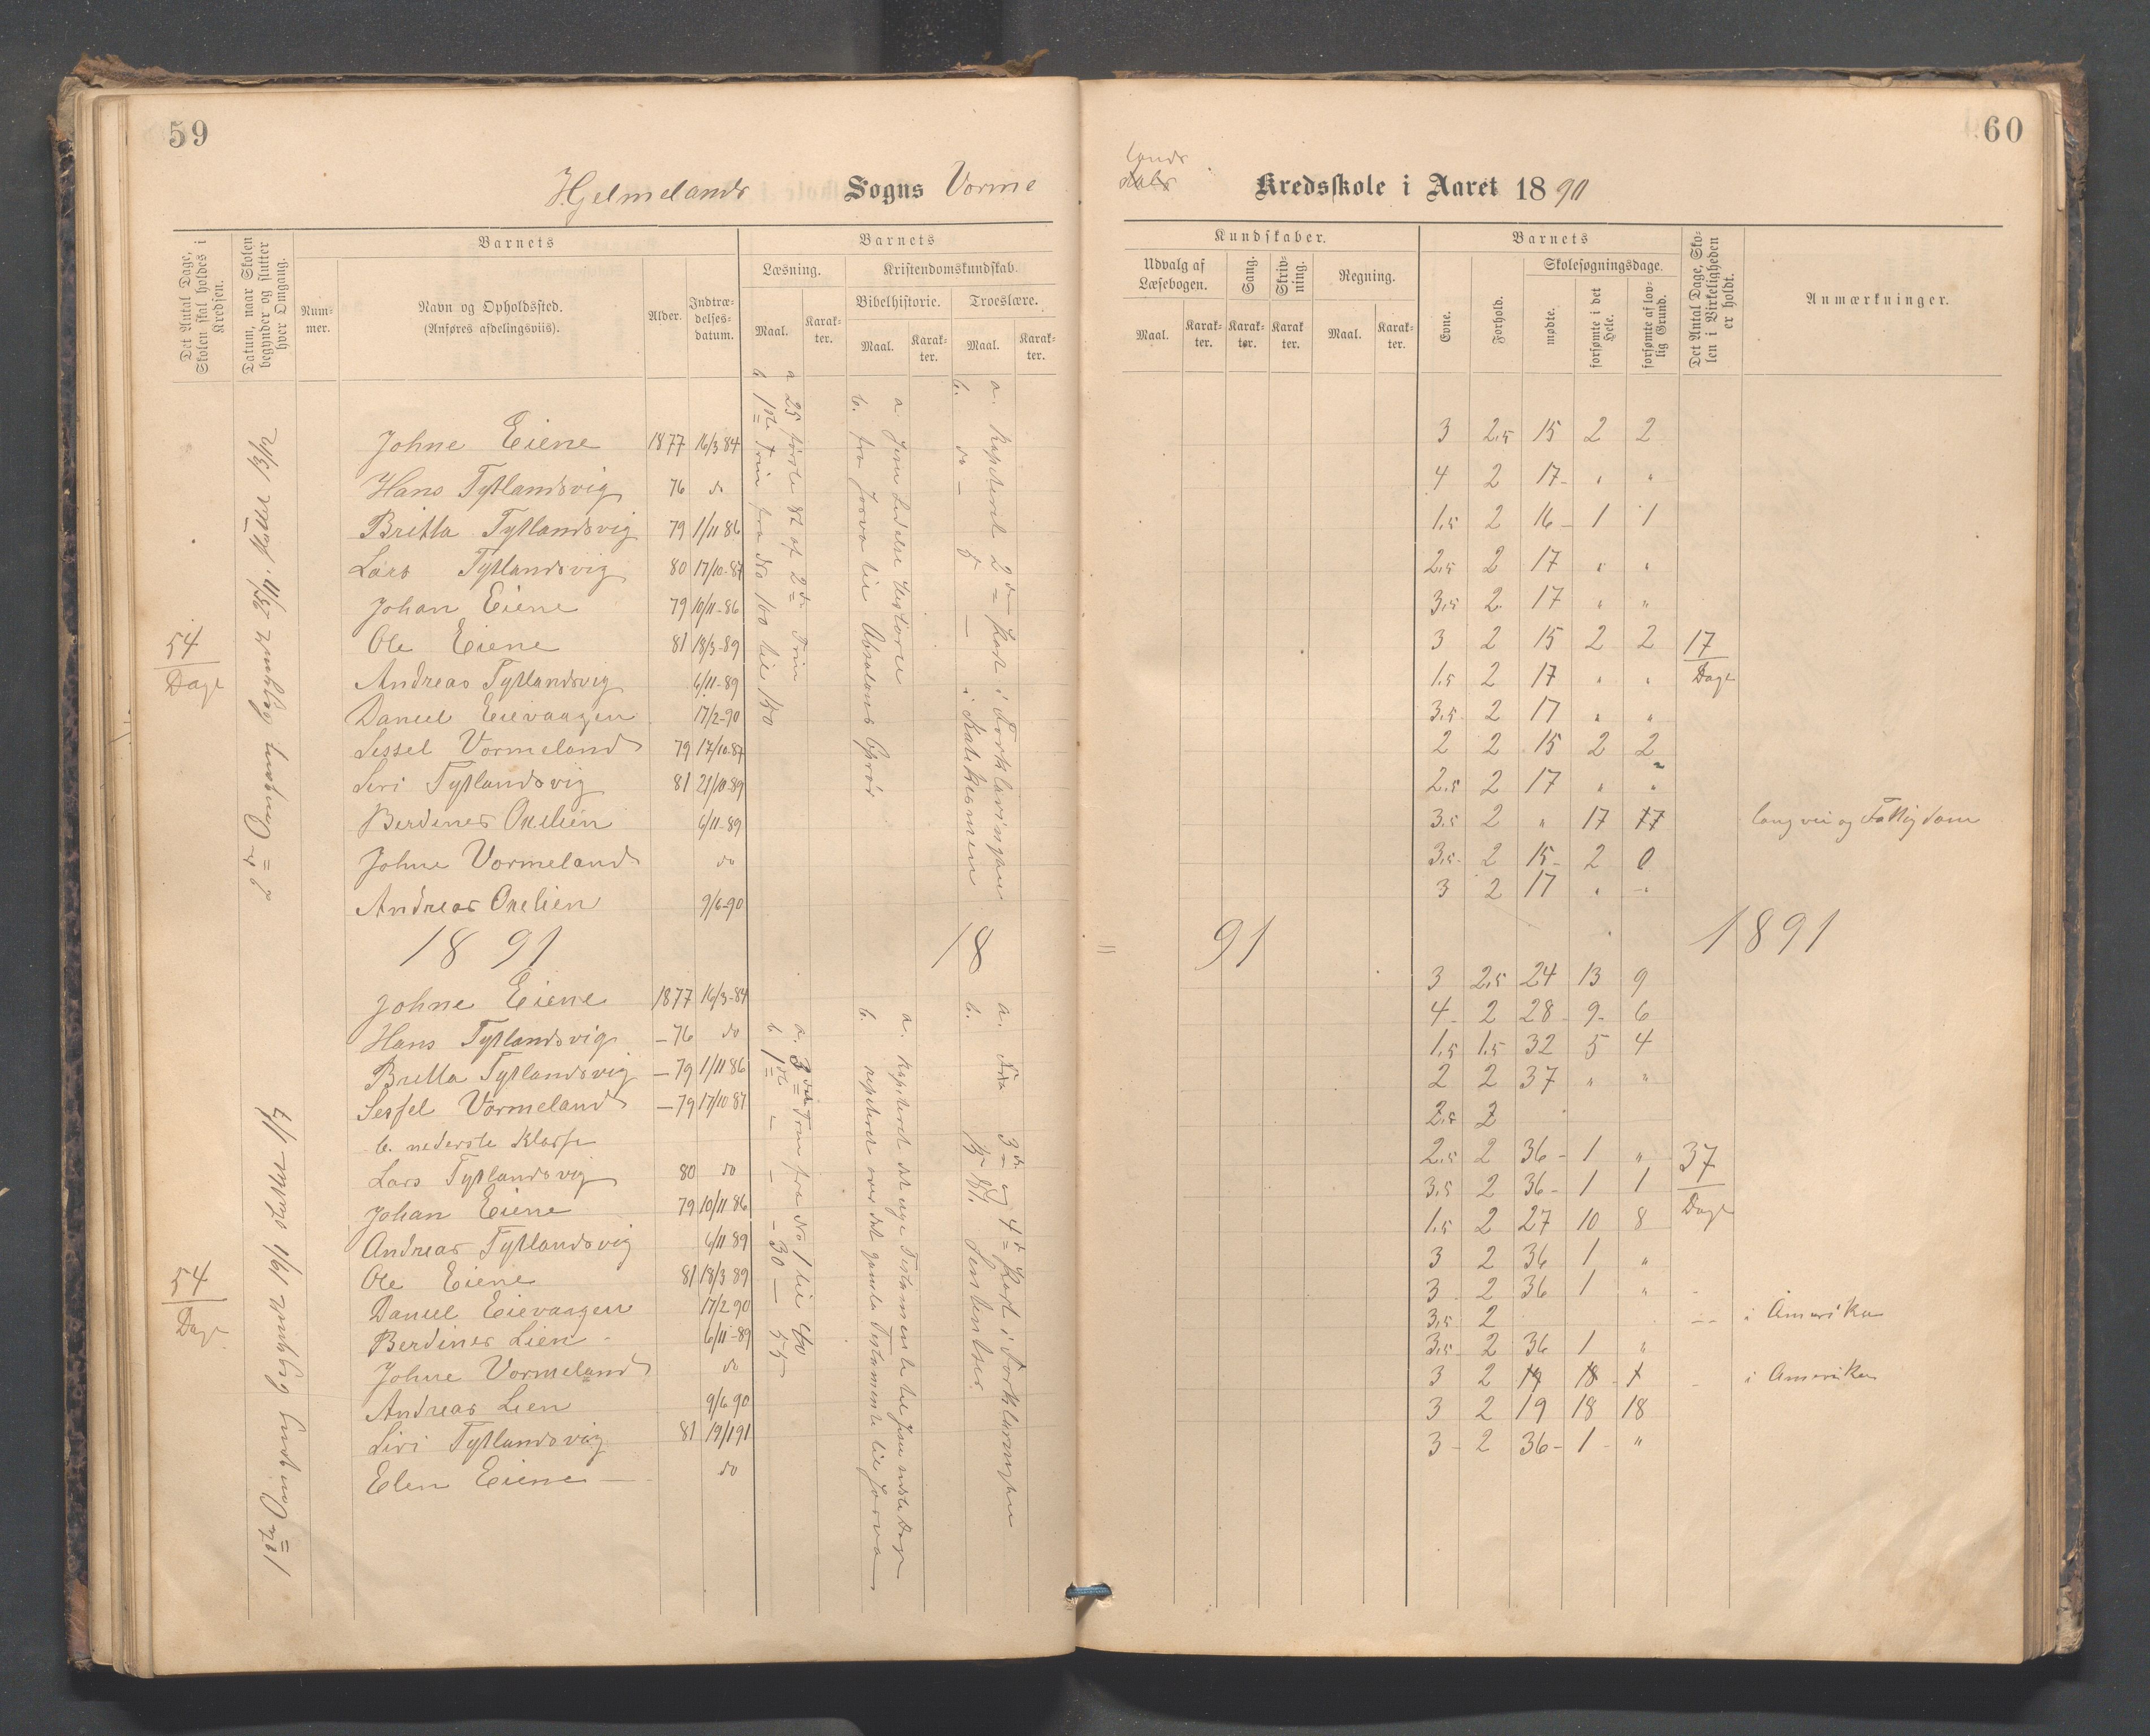 59
60
Hjelmelands Sogns Vorme
lands
Kredsskole i Aaret 1890
Det Antal Dage, Skolen skal holdes i Kredsen.
Datum, naar Skolen begynder og slutter hver Omgang.
Nummer.
Barnets
Navn og Opholdssted.
(Anføres afdelingsviis).
Alder.
Indtrædelsesdatum.
Barnets
Læsning.
Maal.
Karakter.
Kristendomskundskab.
Bibelhistorie.
Maal.
Karakter.
Troeslære.
Maal.
Karakter.
Kundskaber.
Udvalg af Læsebogen.
Maal.
Karakter.
Sang.
Karakter.
Skrivning.
Karakter.
Regning.
Maal.
Karakter.
Barnets
Evne.
Forhold.
Skolesøgningsdage.
mødte.
forsømte i det Hele.
forsømte af lovlig Grund.
Det Antal Dage, Skolen i Virkeligheden er holdt.
Anmærkninger.
54
Dage
2den Omgang begyndt 25/11. sluttet 13/12
a 25 første St af 2det Trin
b 1ste Trin fra No 100 til 150
a. Jesu Lidelse Historie
b. fra Josva til Absalons Oprør
a. Repeteret 2den Part i Forklaringen
b. do – i Katekismen
Johne Eiene 1877 16/3 84 3 2.5 15 2 2
Hans Tytlandsvig 76 do 4 2 17 " "
Britta Tytlandsvig 79 1/11 86 1.5 2 16 1 1
Lars Tytlandsvig 80 17/10-87 2.5 2 17 " "
Johan Eiene 79 10/11-86 3.5 2 17 " "
Ole Eiene 81 18/3-89 3 2 15 2 2 17
Andreas Tytlandsvig 6/11-89 1.5 2 17 " " Dage
Daniel Eievaagen 17/2-90 3.5 2 17 " "
Sessel Vormeland 79 17/10-87 2 2 15 2 2
Siri Tytlandsvig 81 21/10-89 2.5 2 17 " "
Berdines Oxelien 6/11-89 3.5 2 " 17 17 lang vei og Fattigdom
Johne Vormeland do 3.5 2 15 2 0
Andreas Oxelien 9/6-90 3 2 17 " "
1891 18 = 91 1891
54
Dage
1ste Omgang begyndt 19/1 sluttet 1/7
a. 3die Trin fra No 1 til 40
b 1ste – – – 30 – 55
a. Repeteret det nye Testamente til Jesu sidste Dage
b. repeteret over det gamle Testamente til Josva
a. fra 3die og 4de Part i Forklaringen
Johne Eiene 1877 16/3-84 3 2.5 24 13 9
Hans Tytlandsvig – 76 do 4 2 28 9 6
Britta Tytlandsvig – 79 1/11 86 1.5 1.5 32 5 4
Sessel Vormeland – 79 17/10 87 2 2 37 " "
b. nederste Klasse 2.5 2
Lars Tytlandsvig 80 do 2.5 2 36 1 " 37
Johan Eiene 79 10/11 86 3.5 2 36 1 1
Andreas Tytlandsvig 6/11 89 1.5 2 27 10 8 Dage
Ole Eiene 81 18/3 89 3 2 36 1 "
Daniel Eievaagen 17/2 90 3 2 36 1 "
Berdines Lien 6/11-89 3.5 2 i Amerika
Johne Vormeland do 3.5 2 36 1 "
Andreas Lien 9/6 90 3 2 19 18 1 i Amerika
Siri Tytlandsvig 81 19/1 91 3 2 19 18 18
Elen Eiene do 3 2 36 1 "